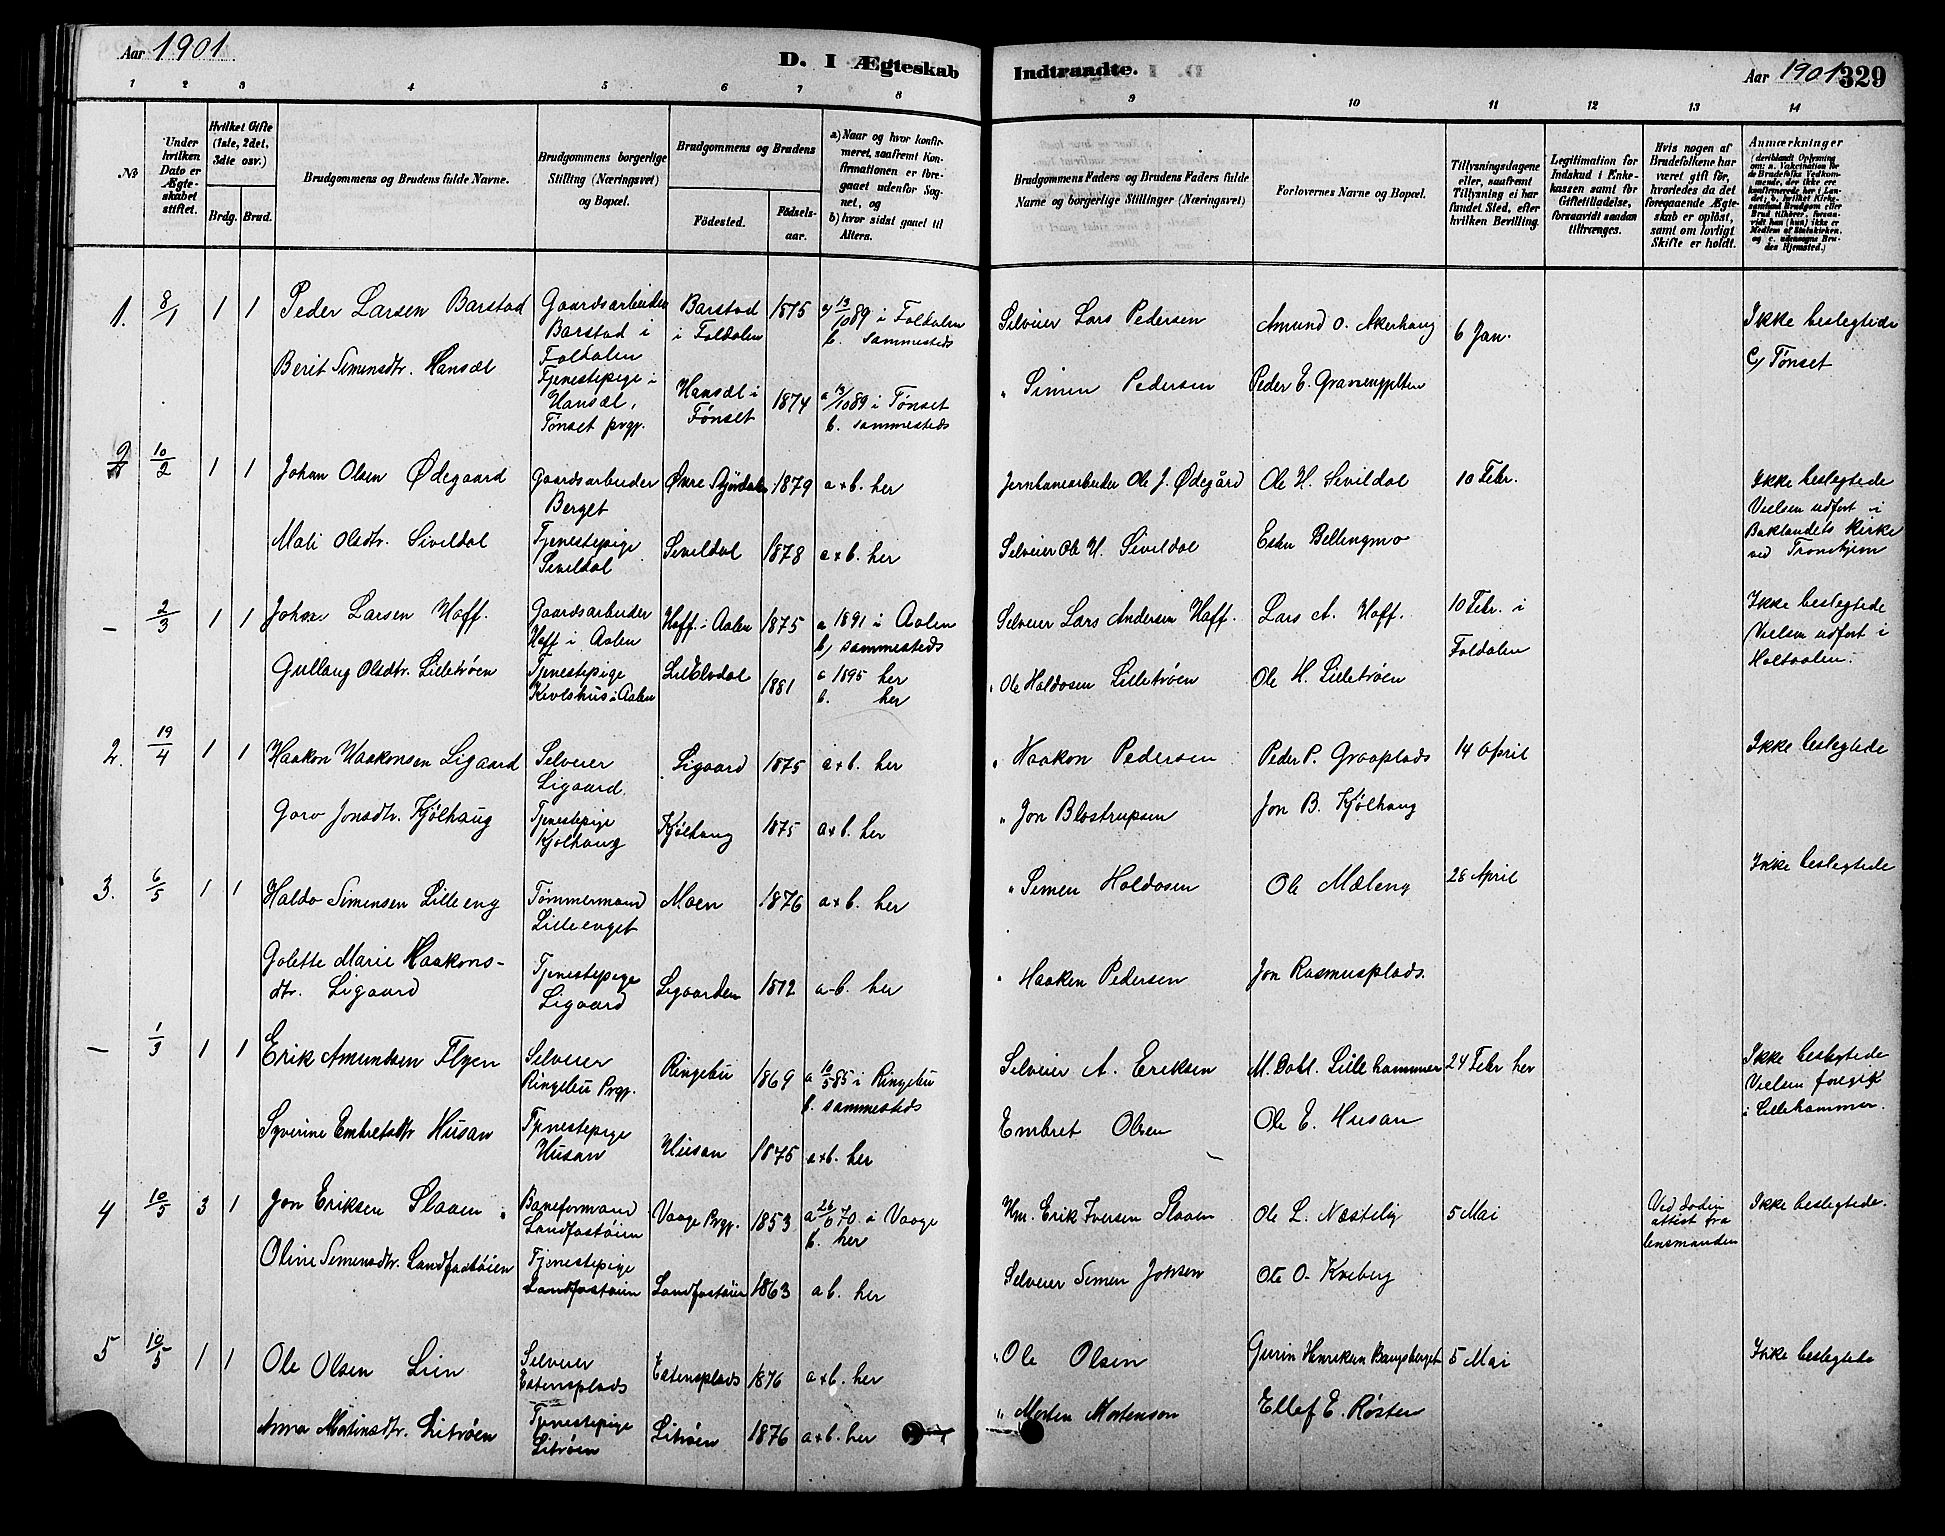 Aar 1901
D. I Ægteskab
Indtraadte.
Aar 1901
329
1 2 3 4 5 6 7 8
9 10 11 12 13 14
No
Under hvilken Dato er Ægteskabet stiftet.
Hvilket Gifte (1ste, 2det, 3die osv.)
Brdg. Brud.
Brudgommens og Brudens fulde Navne.
Brudgommens borgerlige Stilling (Næringsvei) og Bopæl.
Brudgommens og Brudens
Fødested.
Fødsels-aar.
a) Naar og hvor konfirmeret, saafremt Konfirmationen er foregaaet udenfor Sognet, og
b) hvor sidst gaaet til Alters.
Brudgommens Faders og Brudens Faders fulde Navne og borgerlige Stillinger (Næringsvei)
Forlovernes Navne og Bopæl.
Tillysningsdagene eller, saafremt Tillysning ei har fundet Sted, efter hvilken Bevilling.
Legitimation for Indskud i Enkekassen samt for Giftetilladelse, forsaavidt saadan tiltrænges.
Hvis nogen af Brudefolkene har været gift før, hvorledes da det foregaaende Ægteskab er opløst, samt om lovligt Skifte er holdt.
Anmærkninger
1. 8/1 1 1 Peder Larsen Barstad
Gaardsarbeider Barstad i Foldalen
Barstad i Foldalen
1875
a) 13/10 89 i Foldalen
b. sammesteds
Selveier Lars Pedersen
Amund O. Akerhaug
6 Jan.
Ikke beslegtede
c) Tønset
Berit Simensdtr. Hansæl
Tjenestepige i Hansæl, Tønset prgj.
Hansæl i Tønset
1874
a 13/10 89 i Tønset
b. sammesteds
" Simen Pedersen
Peder E.
10/2 1 1 Johan Olsen Ødegaard
Gaardsarbeider Berget
Øvre
1879
a+b. her
Ole J. Ødegård
Ole H. Sivildal
10 Febr.
Ikke beslegtede
Vielsen udført i
Baklandets Kirke
ved Tronhjem
Mali Olsdtr. Sivildal
Tjenestepige Sivildal
Sivildal
1878
a+b. her
Selveier Ole H. Sivildal
Esten Bellingmo
– 2/3 1 1 Johan Larsen Hoff.
Gaardsarbeider Hoff i Aalen
Hoff i Aalen
1875
a 1891 i Aalen
b) sammesteds
Selveier Lars Andersen Hoff.
Lars A. Hoff.
10 Febr. i Foldalen
Ikke beslegtede
Vielsen udført i
Holtaalen.
Gullaug Olsdtr. Lilletrøen
Tjenestepige Kirkhus i Aalen
Lilelvdal
1881
a 1895 her
b. her
" Ole Haldosen Lilletrøen
Ole H. Lilletrøen
2. 19/4 1 1 Haakon Haakonsen Ligaard
Selveier Ligaard.
Ligaard
1875
a+b. her
" Haakon Pedersen
Peder P. Graaplads
14 April
Ikke beslegtede
Goro Jonsdtr. Kjølhaug
Tjenestepige Kjølhaug
Kjølhaug
1875
a+b. her
" Jon Blostrupsen
Jon B. Kjølhaug
3. 6/5 1 1 Haldo Simensen Lilleeng
Tømmermand Lilleenget
Moen
1876
a+b. her
" Simen Haldosen
Ole Mæleng
28 April
Ikke beslegtede
Golette Marie Haakons-
dtr. Ligaard
Tjenestepige Ligaard
Ligaarden
1872
a-b. her
" Haaken Pedersen
Jon Rasmusplads.
– 1/3 1 1 Erik Amundsen Flyen
Selveier Ringebu Prgj.
Ringebu
1869
a 10/5 85 i Ringebu
b. sammesteds
Selveier A. Eriksen
M. Dahl. Lillehammer
24 Febr her
Ikke beslegtede
Vielsen foregik
i Lillehammer.
Syverine Embretsdtr Husan
Tjenestepige Husan
Husan
1875
a+b. her
Embret Olsen
Ole E. Husan
4 10/5 3 1 Jon Eriksen Slaaen
Baneformand Landfastøien
Vaage Prgj.
1853
a 26/6 70 i Vaage
b. her
Hm. Erik Iversen Slaaen
Ole L. Næstelig
5 Mai
Ved Døden
attest fra
lensmanden
Ikke beslegtede.
Oline Simensdtr. Landfastøien
Tjenestepige Landfastøien
Landfastøien
1863
a b. her
Selveier Simen Jonsen
Ole O. Kveberg
5 10/5 1 1 Ole Olsen Lien
Selveier Estensplads
Estensplads
1876
a+b. her
" Ole Olsen
Gurin Henriksen
5 Mai
Ikke beslegtede
Anna Mortensdtr. Litrøen
Tjenestepige Litrøen
Litrøen
1876
a+b. her
" Morten Mortenson
Ellef E. Røsten